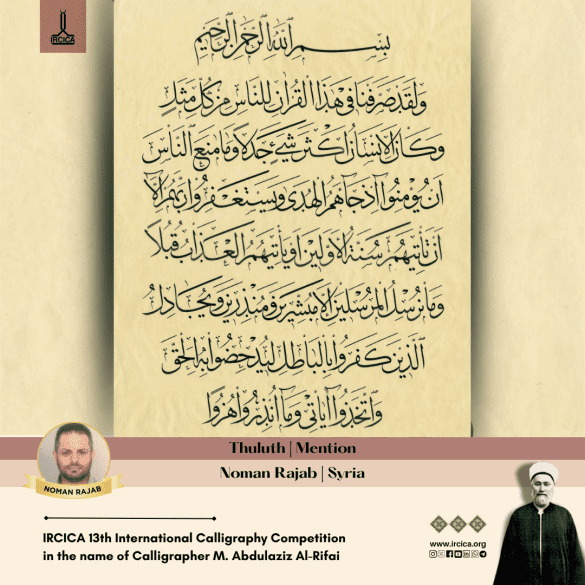 IRCICA
بسم الله الرحمن الرحيم
ولقد صرفنا في هذا القرآن للناس من كل مثل
وكان الإنسان أكثر شيء جدلا وما منع الناس
أن يؤمنوا إذ جاءهم الهدى ويستغفروا ربهم إلا
أن تأتيهم سنة الأولين أو يأتيهم العذاب قبلا
وما نرسل المرسلين إلا مبشرين ومنذرين ويجادل
الذين كفروا بالباطل ليدحضوا به الحق
واتخذوا آياتي وما أنذروا هزوا
Thuluth | Mention
Noman Rajab | Syria
NOMAN RAJAB
IRCICA 13th International Calligraphy Competition
in the name of Calligrapher M. Abdulaziz Al-Rifai
www.ircica.org